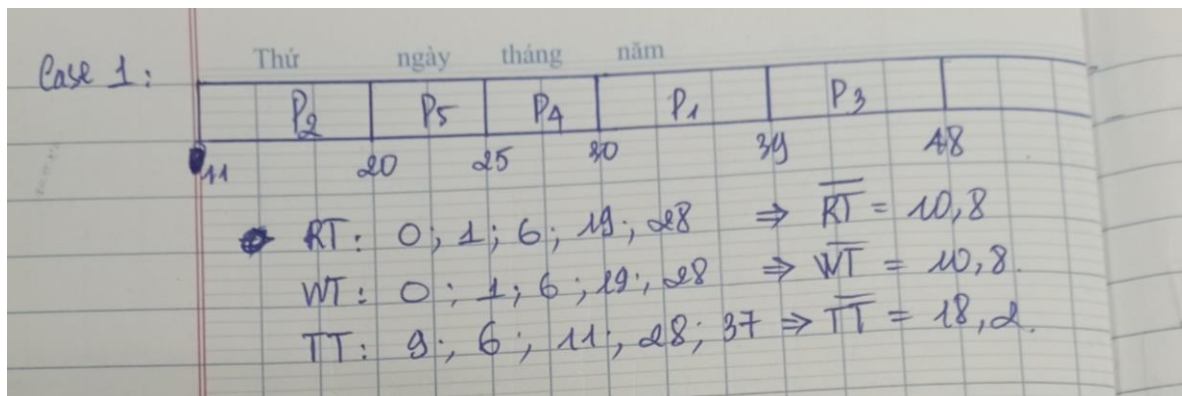 Thứ ngày tháng năm
Case 1: P2 P5 P4 P1 P3
11 20 25 30 39 48
RT: 0; 1; 6; 19; 28 ⇒ R̅T̅ = 10,8
WT: 0; 1; 6; 19; 28 ⇒ W̅T̅ = 10,8.
TT: 9; 6; 11; 28; 37 ⇒ T̅T̅ = 18,2.